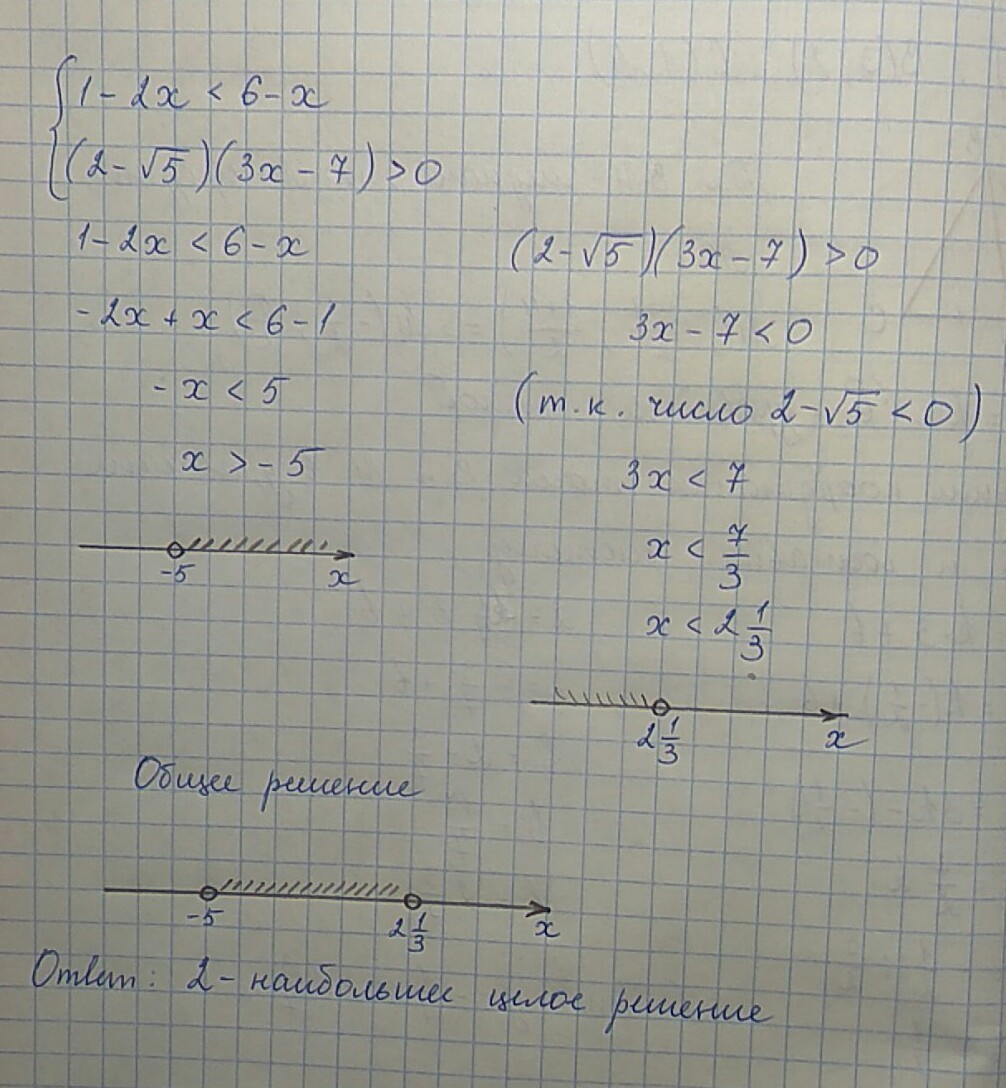 {1 - 2x < 6 - x
(2 - √5)(3x - 7) > 0
1 - 2x < 6 - x
- 2x + x < 6 - 1
- x < 5
x > - 5
-5 x
(2 - √5)(3x - 7) > 0
3x - 7 < 0
(т.к. число 2 - √5 < 0)
3x < 7
x < 7/3
x < 2 1/3
2 1/3 x
Общее решение
-5 2 1/3 x
Ответ: 2 - наибольшее целое решение